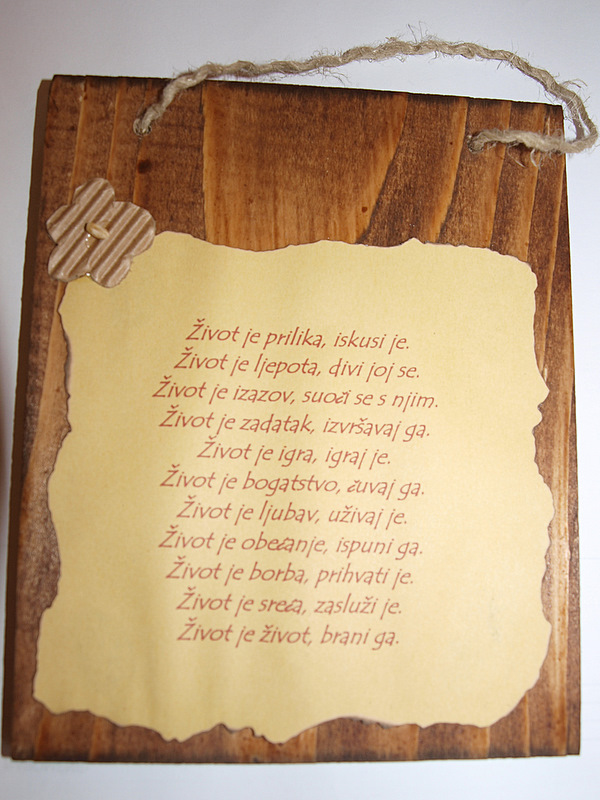 Život je prilika, iskusi je.
Život je ljepota, divi joj se.
Život je izazov, suoči se s njim.
Život je zadatak, izvršavaj ga.
Život je igra, igraj je.
Život je bogatstvo, čuvaj ga.
Život je ljubav, uživaj je.
Život je obećanje, ispuni ga.
Život je borba, prihvati je.
Život je sreća, zasluži je.
Život je život, brani ga.